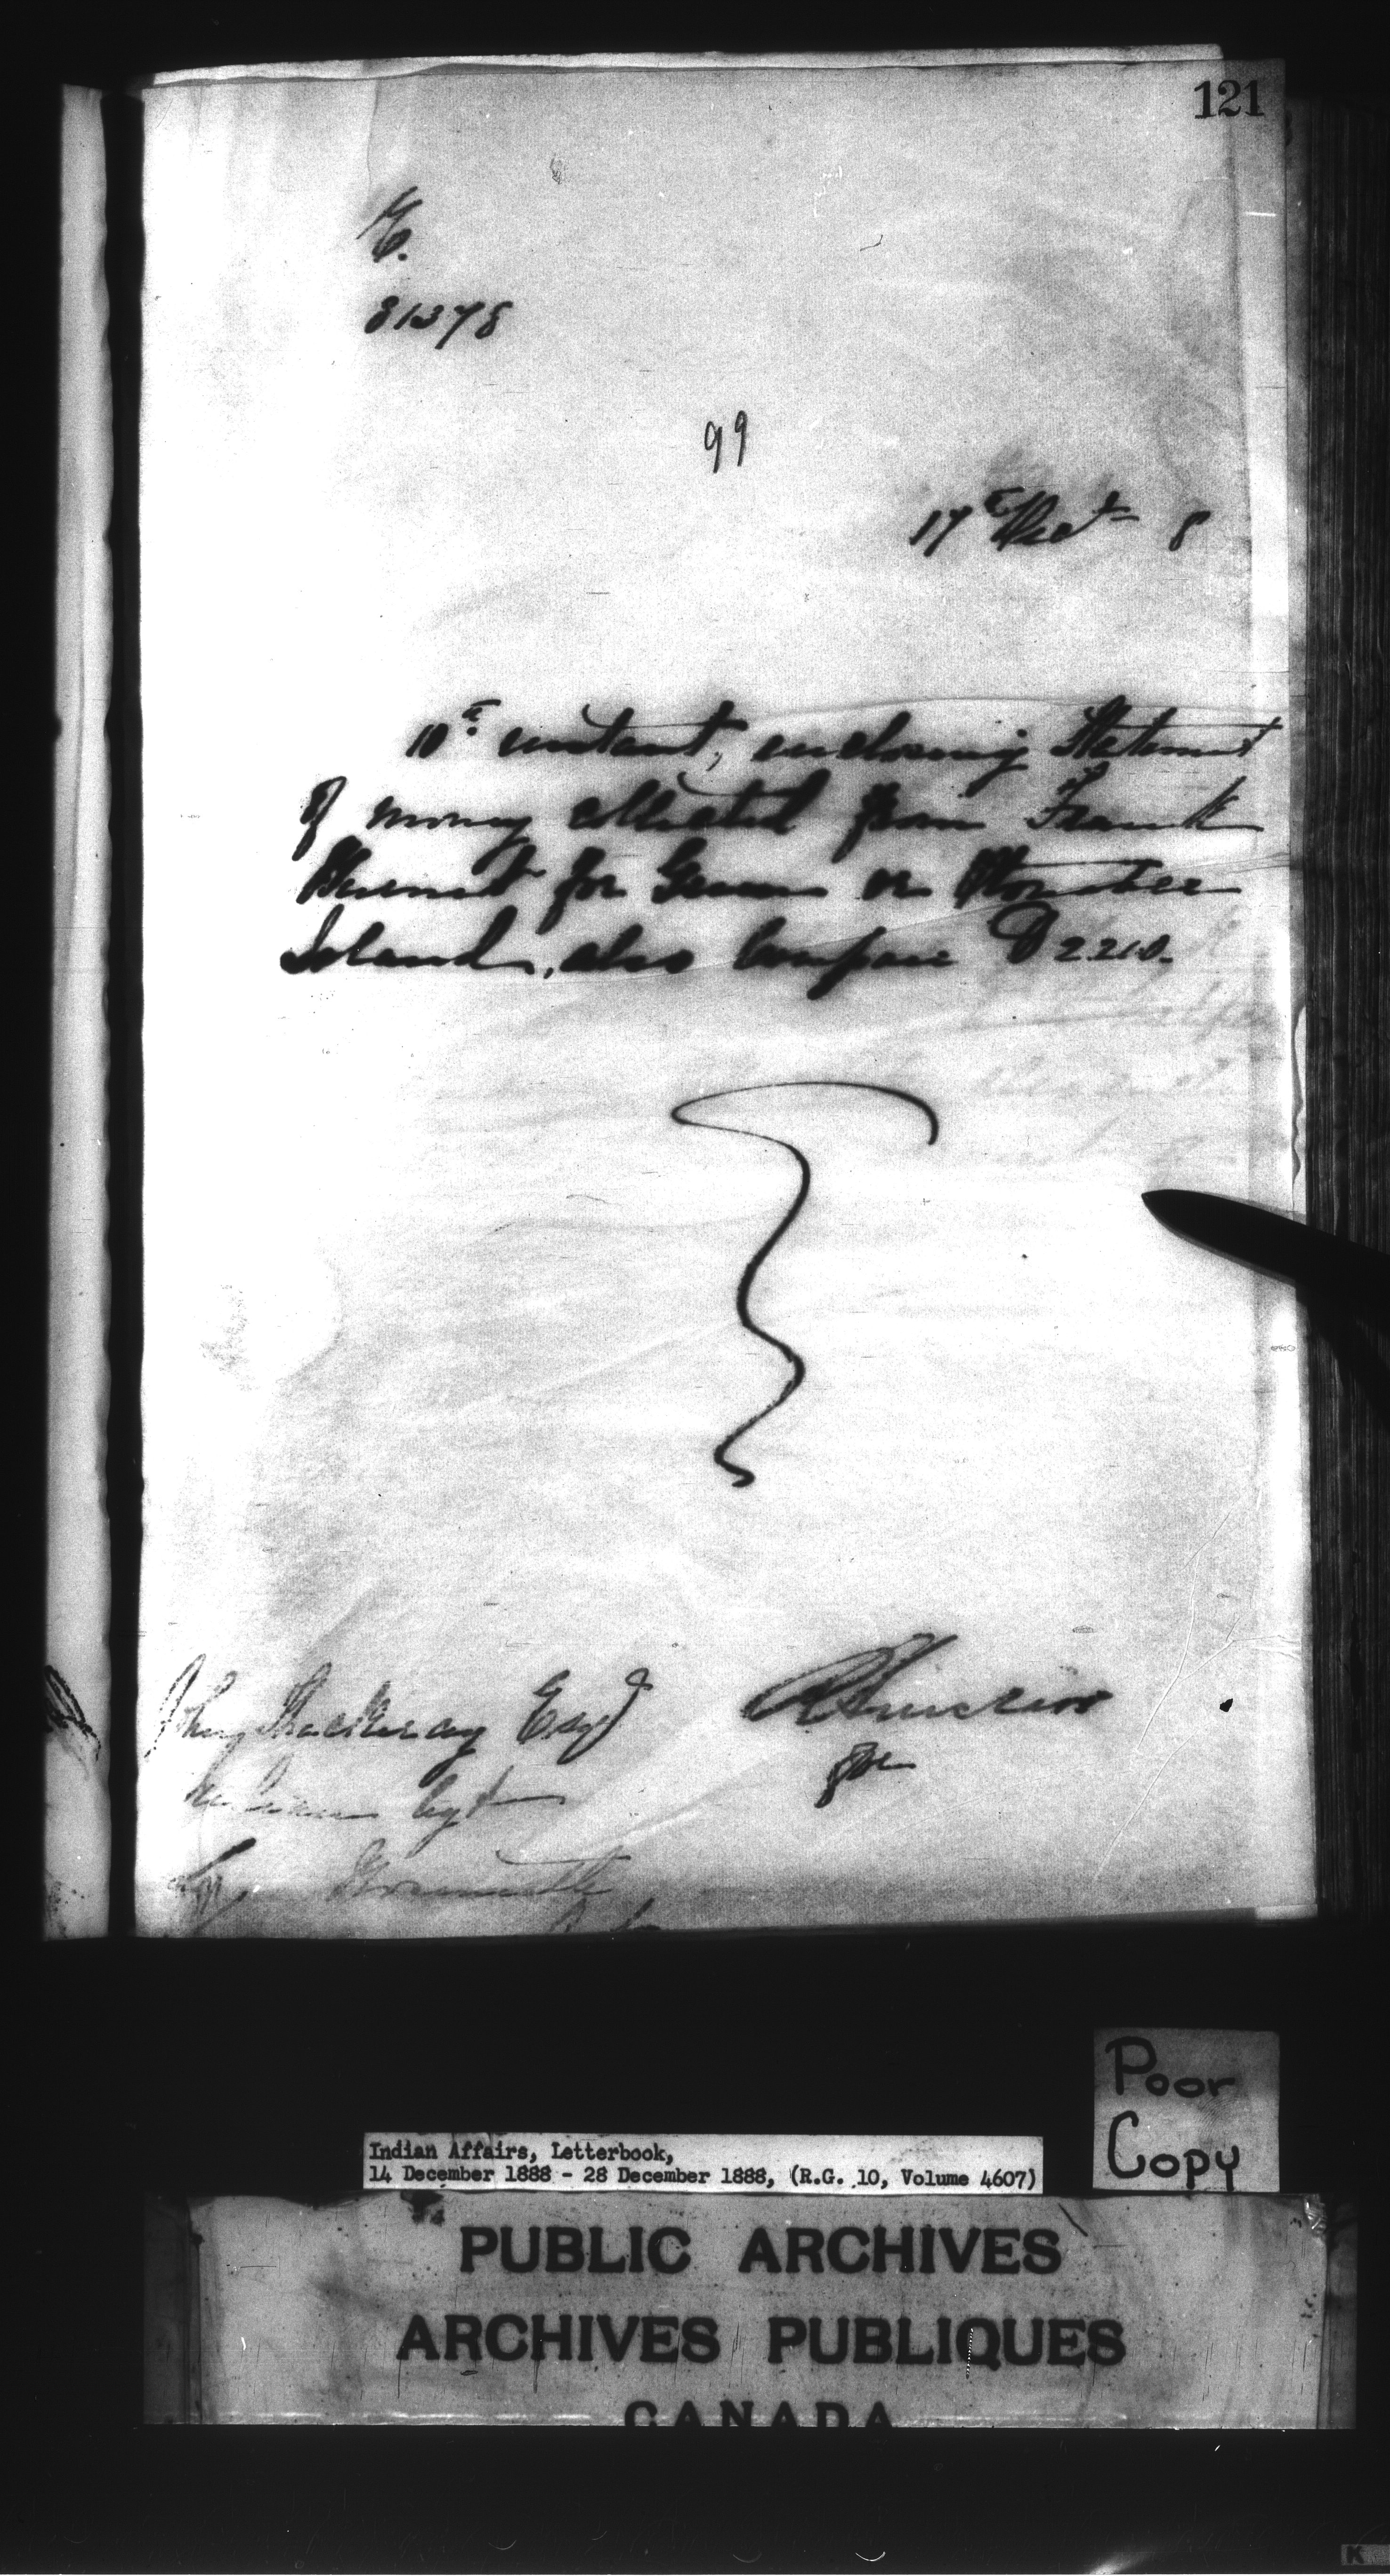 121
E.
81378
99
17th Dec 8
10th instant, enclosing Statement
of money collected from Frank
for Green or
Island, also Coupon D 2210.
John Thackeray Esqr
Indian Agt
Poor
Copy
Indian Affairs, Letterbook,
14 December 1888 - 28 December 1888, (R.G. 10, Volume 4607)
PUBLIC ARCHIVES
ARCHIVES PUBLIQUES
CANADA
K